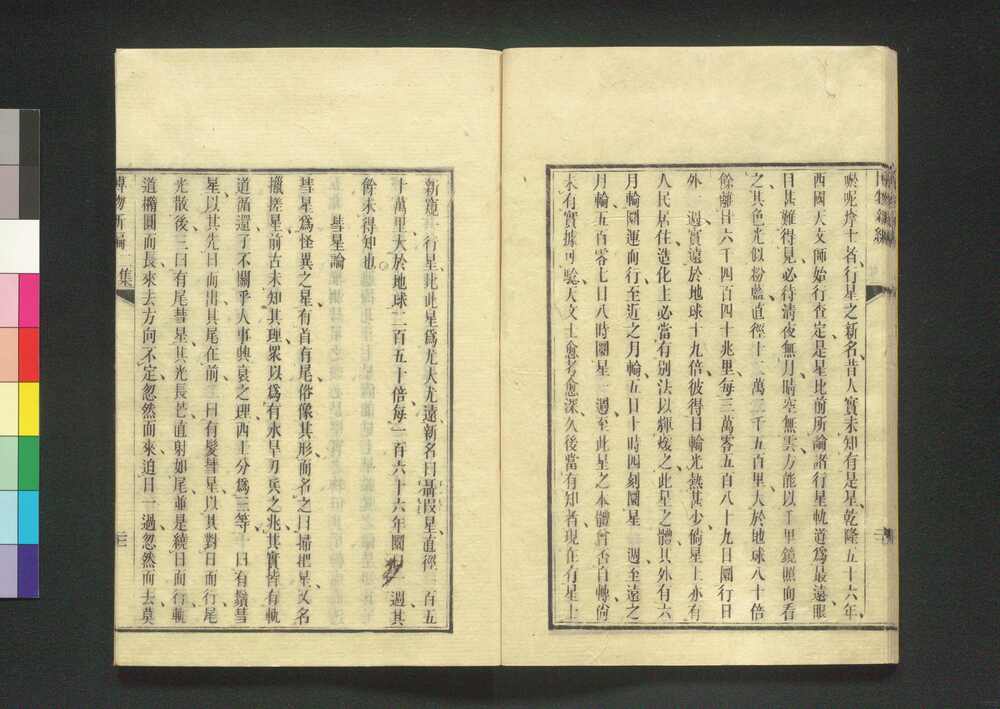 呢㖇者行星之新名昔人實未知有是星乾隆五十六年
西國天文師始行查定是星比前所論諸行星軌道爲最遠眼
目甚難得見必待淸夜無月晴空無雲方能以千里鏡照而看
之其色光似粉藍直徑十二萬三千五百里大於地球八十倍
餘離日六千四百四十兆里每三萬零五百八十九日圜行日
外一週實遠於地球十九倍彼得日輪光熱甚少倘星上亦有
人民居住造化主必當有別法以輝煖之此星之體其外有六
月輪圜運而行至近之月輪五日十時四刻圜星一週至遠之
月輪五百零七日八時圜星一週至此星之本體會否自轉尙
未有實據可驗天文士愈考愈深久後當有知者現在行星上
新窺一行星比此星爲尤大尤遠新名曰星直徑一百五
十萬里大於地球二百五十倍每一百六十六年圜日一週其
餘未得知也
彗星論
彗星爲怪異之星有首有尾俗像其形而名之曰掃把星又名
攙搓星前古未知其理衆以爲有水旱刃兵之兆其實皆有軌
道循還了不關乎人事興衰之理西士分爲三等一曰有鬚彗
星以其先日而出其尾在前二曰有髮彗星以其對日而行尾
光散後三曰有尾彗星其光長芒直射如尾並是繞日而行軌
道橢圓而長來去方向不定忽然而來迫日一過忽然而去莫
博物新編二集